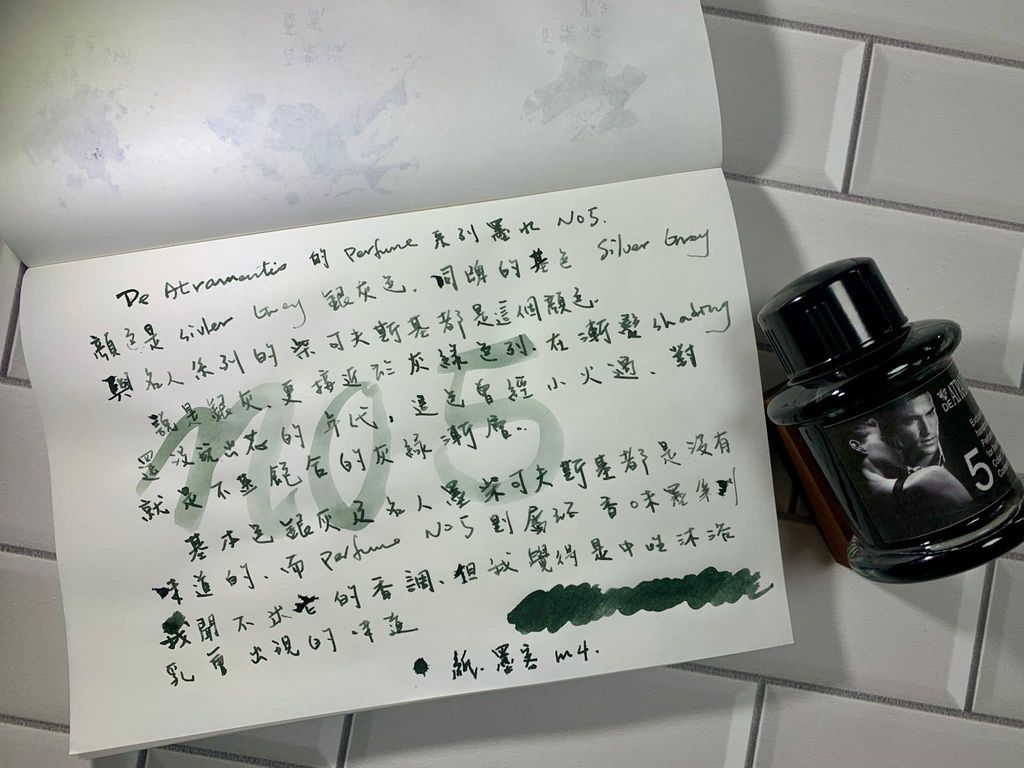 De Atramentis 的 Perfume 系列墨水 No5.
顏色是 Silver Grey 銀灰色. 同牌的基色 Silver Grey
與名人系列的柴可夫斯基都是這個顏色.
說是銀灰、更接近於灰綠色列、在漸層 shading
還沒說出花的年代, 這色曾經小火過、對
就是不甚飽合的灰綠漸層..
基本色銀灰及名人墨柴可夫斯基都是沒有
味道的、而 Perfume No5 則屬於香味墨系列
我聞不出它的香調、但我覺得是中性沐浴
乳會出現的味道
紙. 墨客 m4.
No 5
DE ATRA
5